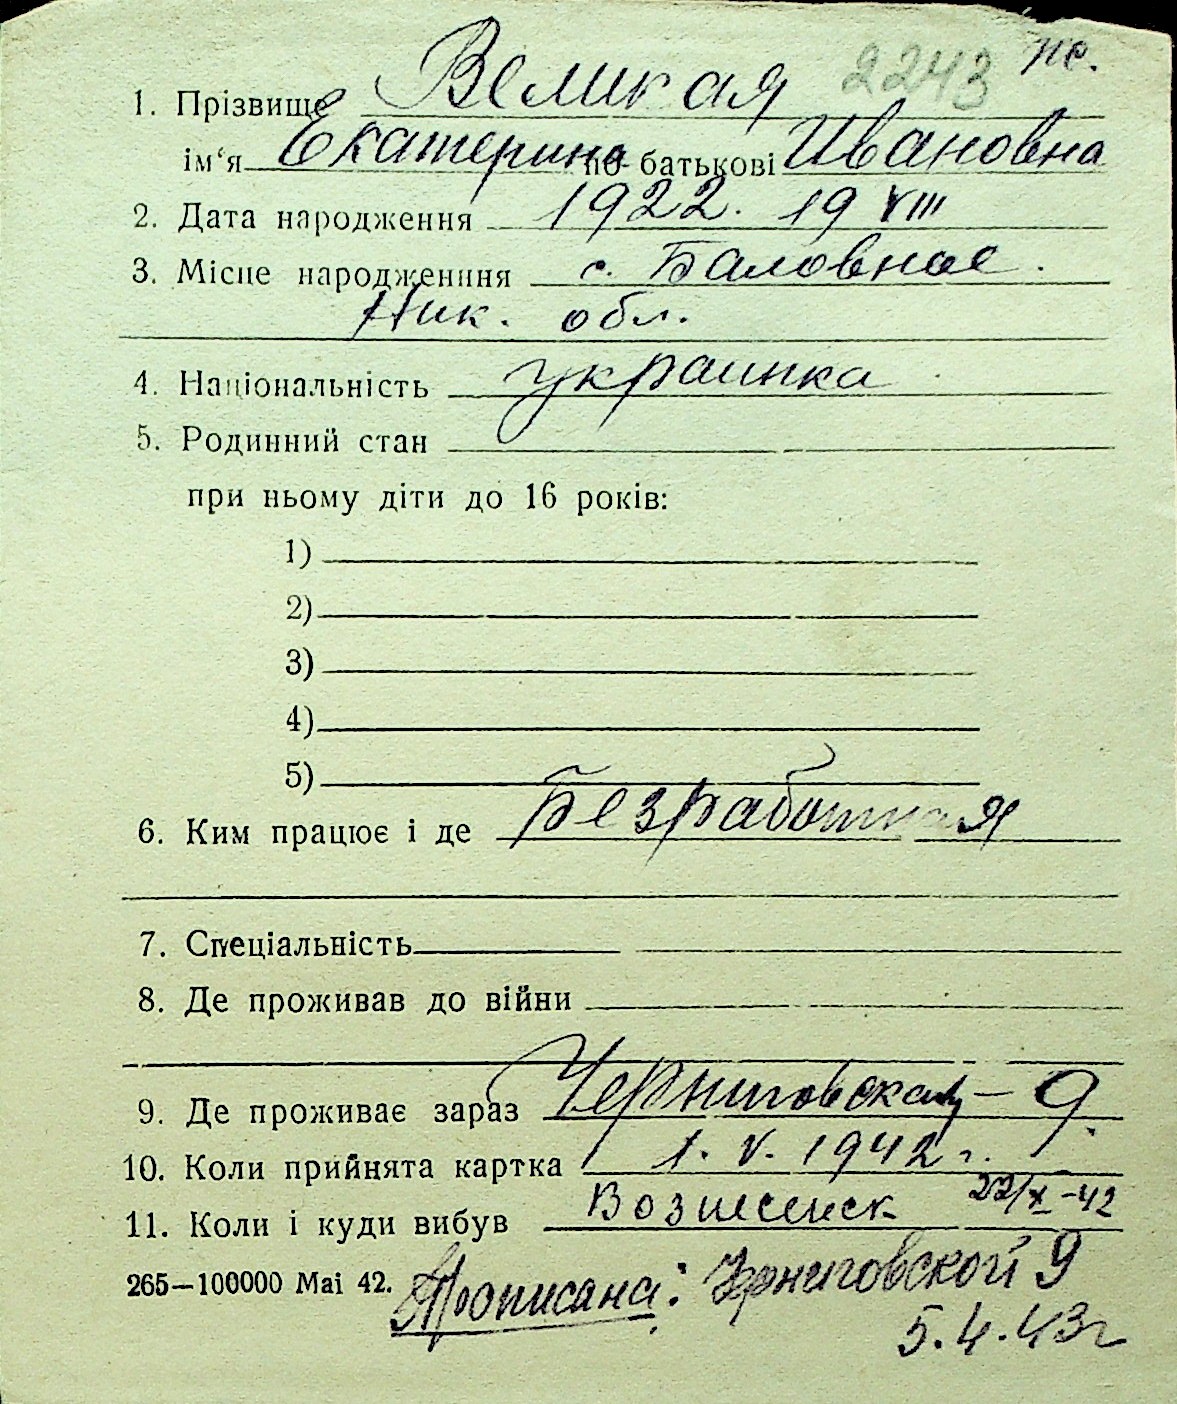 2243 пс.
1. Прізвище Великая
ім‘я Екатерина по-батькові Ивановна
2. Дата народження 1922. 19 VIII
3. Місце народженння с. Баловное.
Ник. обл.
4. Національність украинка
5. Родинний стан
при ньому діти до 16 років:
1)
2)
3)
4)
5)
6. Ким працює і де Безработная
7. Спеціальність
8. Де проживав до війни
9. Де проживає зараз Черниговская – 9.
10. Коли прийнята картка 1. V. 1942 г.
11. Коли і куди вибув Вознесенск 22/X-42
265—100000 Mai 42. Прописана: Черниговской 9
5.4.43г